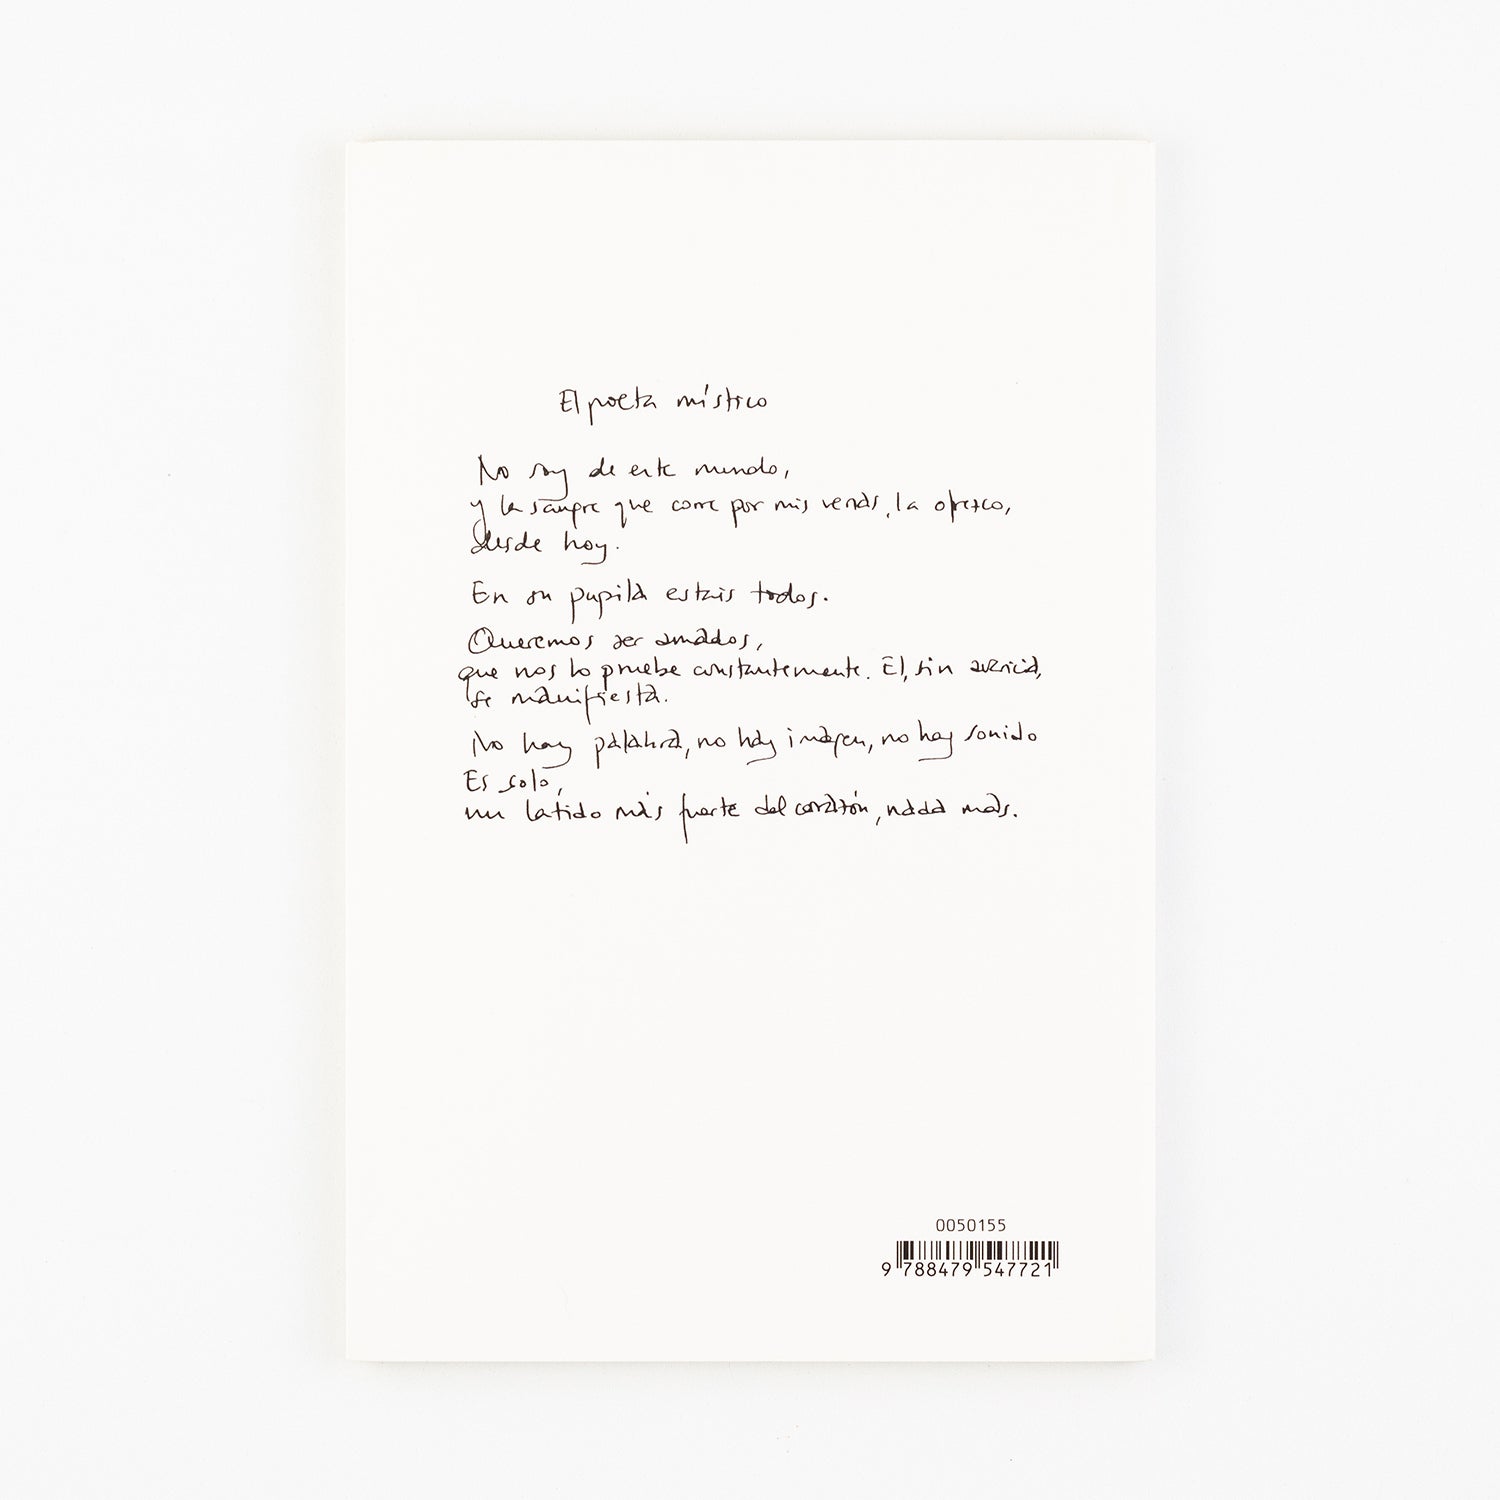 El poeta místico
No soy de este mundo,
y la sangre que corre por mis venas, la ofrezco,
desde hoy.
En su pupila estáis todos.
Queremos ser amados,
que nos lo pruebe constantemente. El, sin avaricia,
se manifiesta.
No hay palabra, no hay imagen, no hay sonido
Es solo,
un latido más fuerte del corazón, nada más.
0050155
9 788479 547721